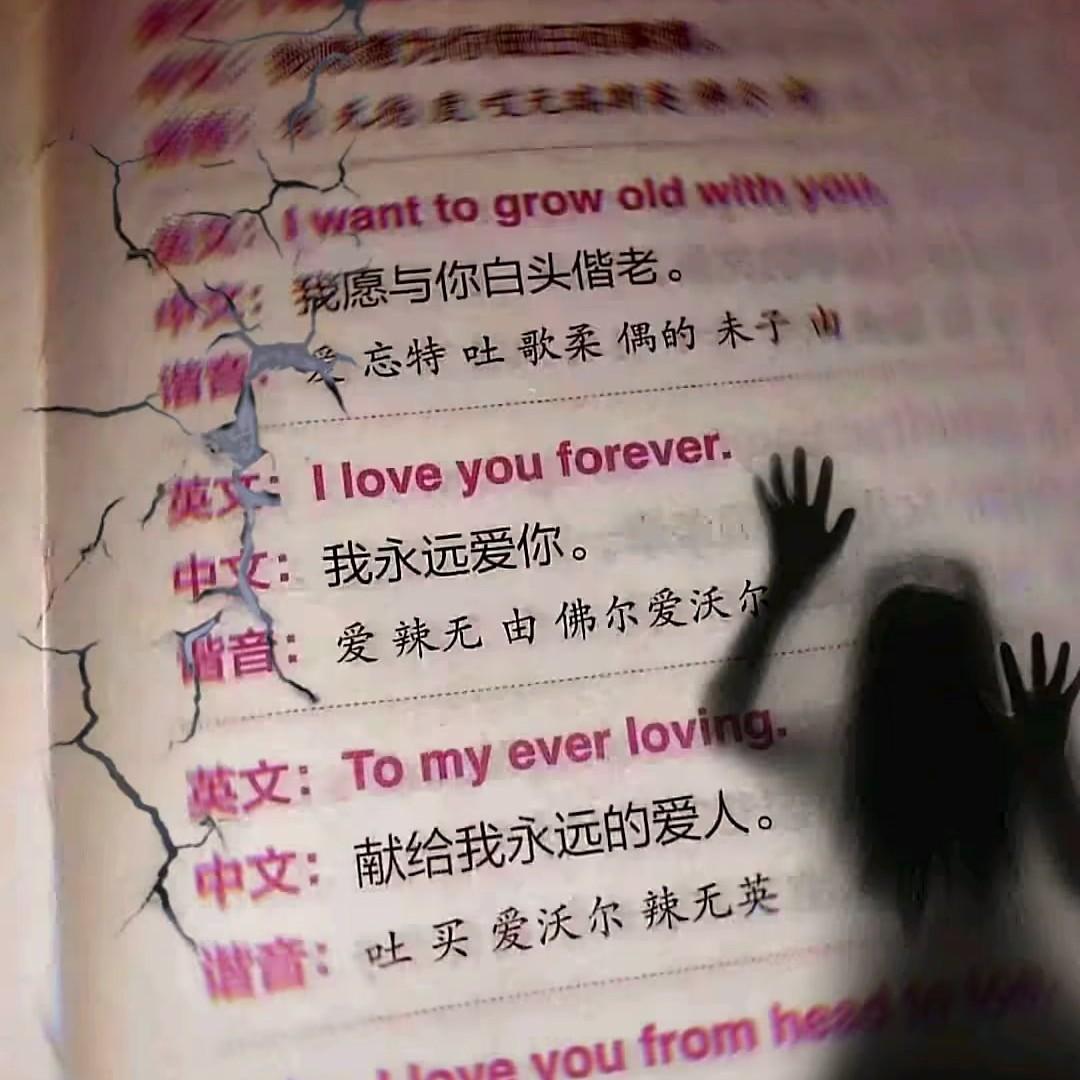 英文：I want to grow old with you.
中文：我愿与你白头偕老。
谐音：爱 忘特 吐 歌柔 偶的 未子 由
英文：I love you forever.
中文：我永远爱你。
谐音：爱 辣无 由 佛尔爱沃尔
英文：To my ever loving.
中文：献给我永远的爱人。
谐音：吐 买 爱沃尔 辣无英
I love you from head to